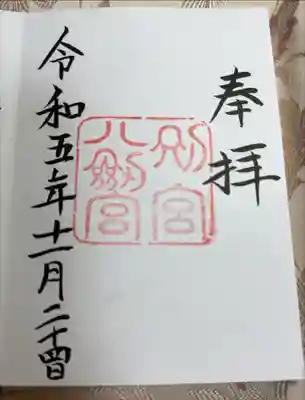 奉拝
別宮
八剱宮
令和五年十一月二十四日